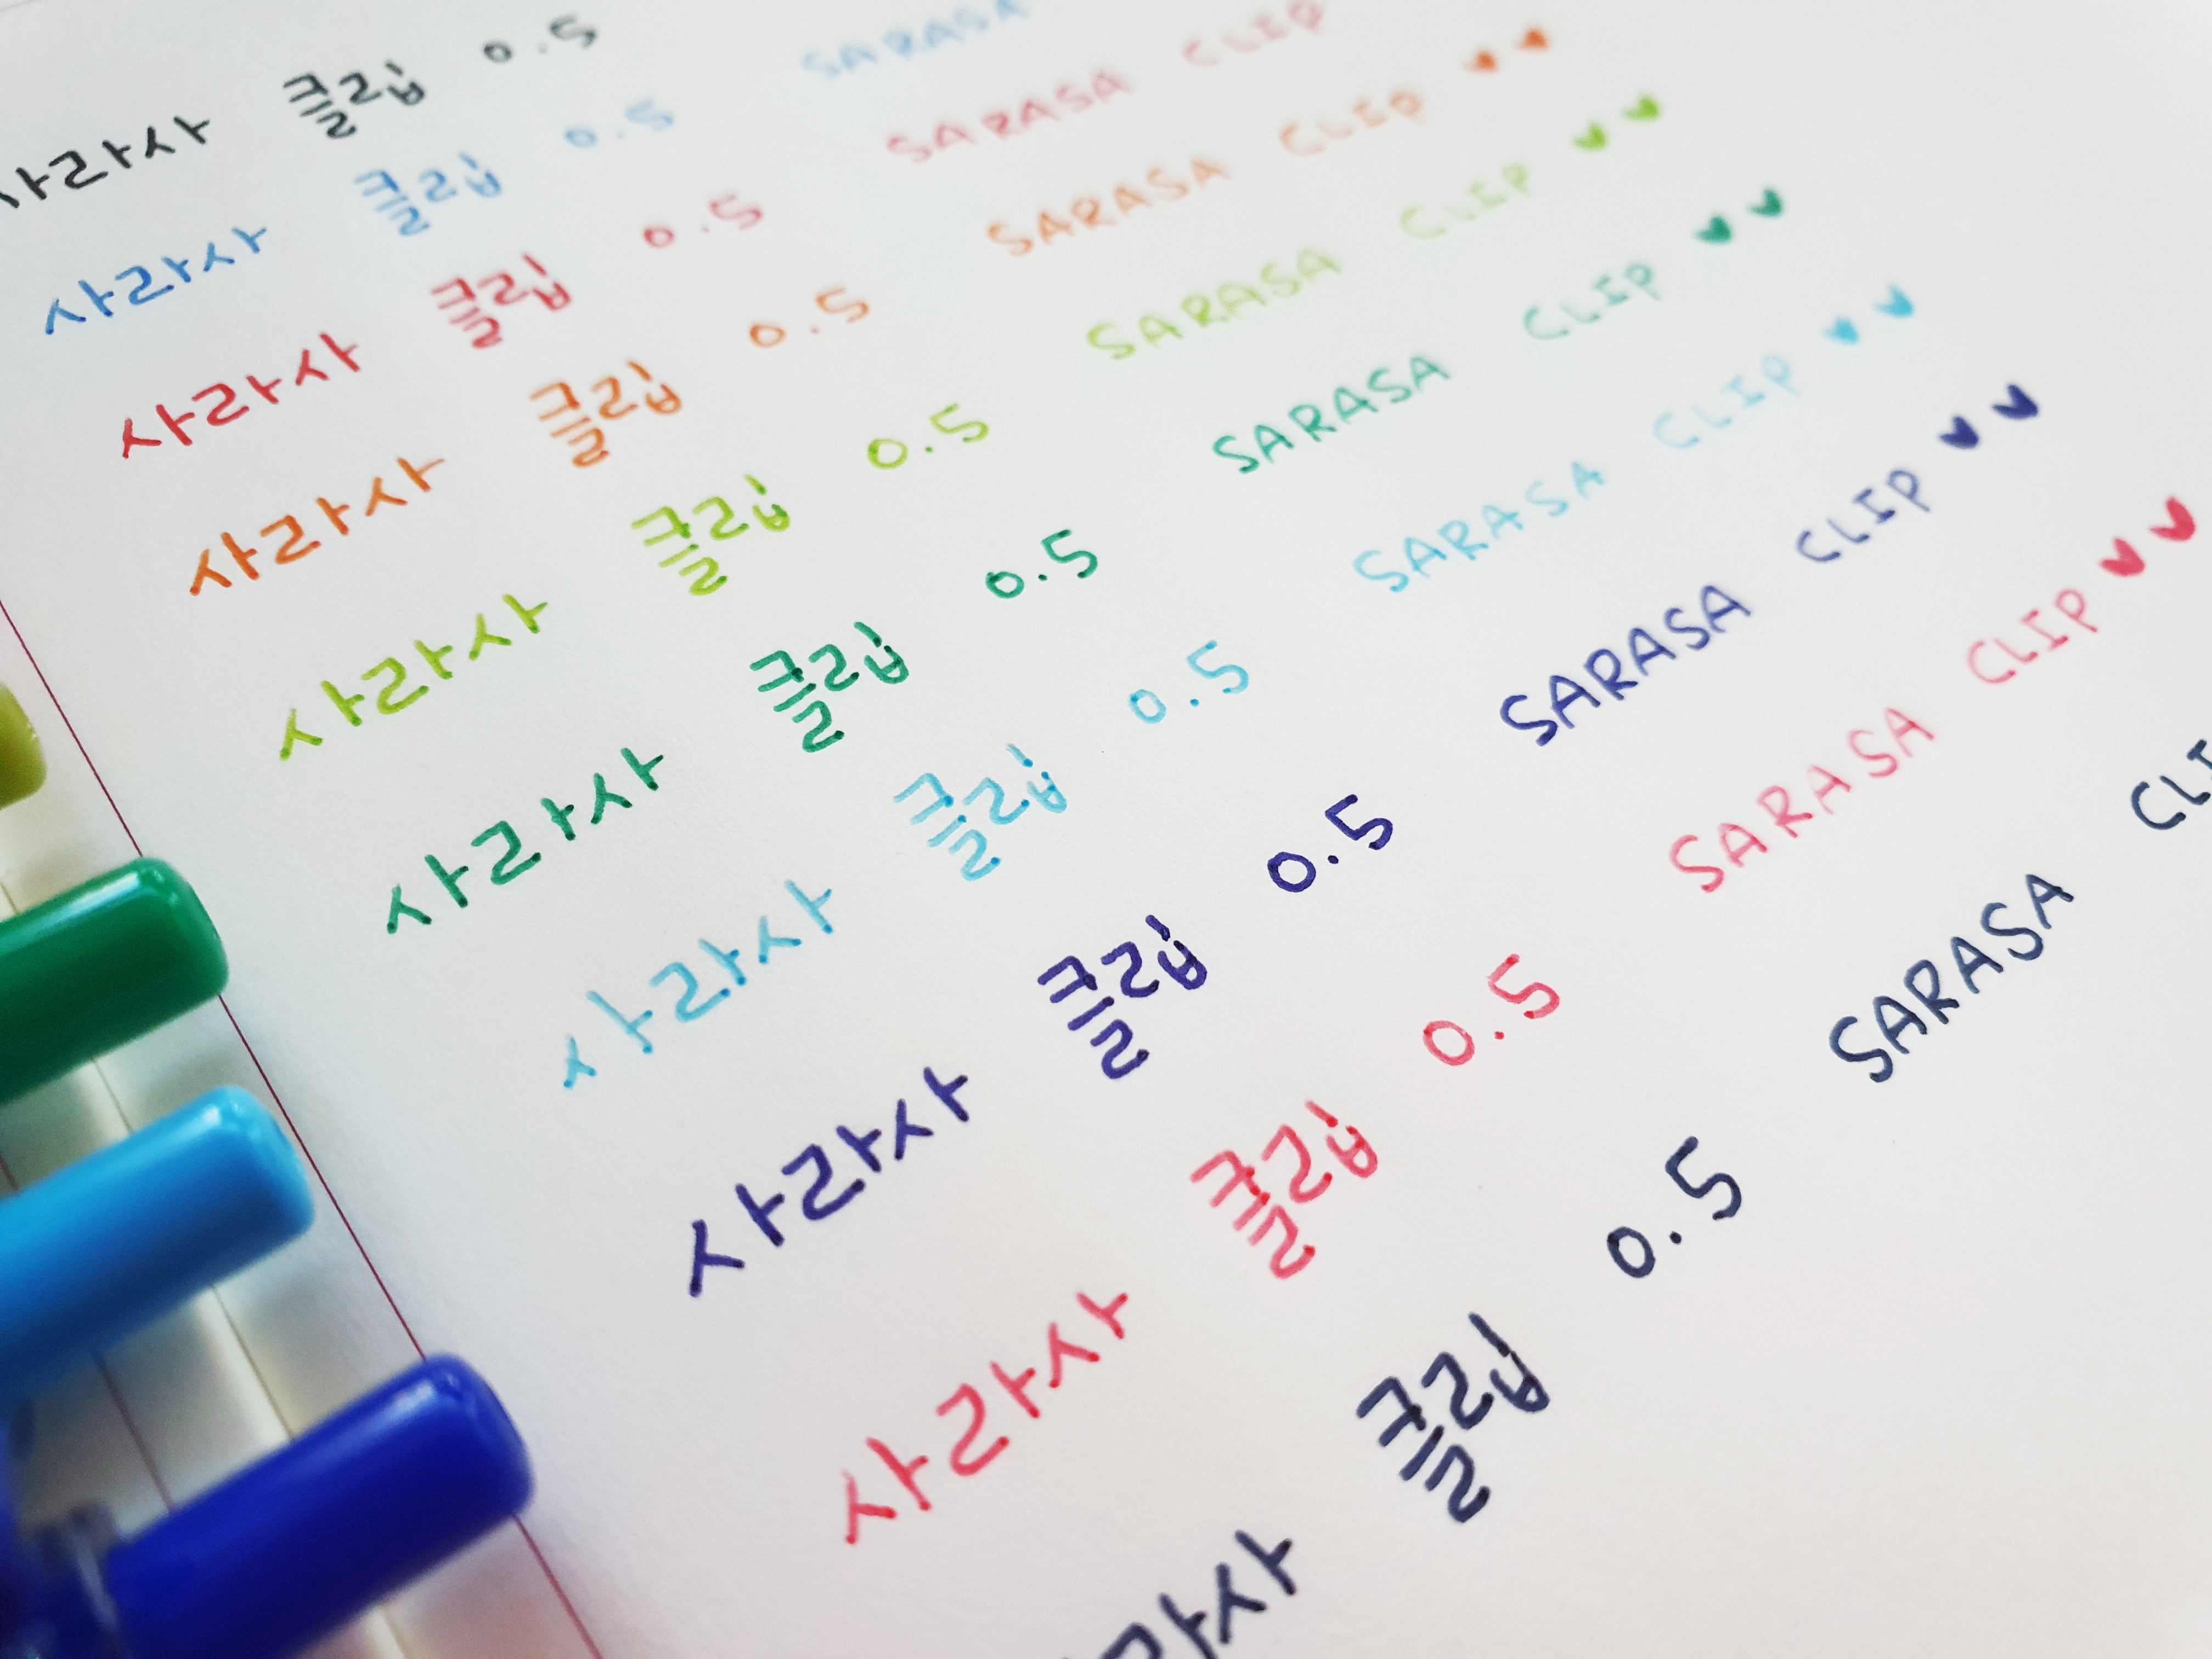 사라사 클립 0.5
사라사 클립 0.5 SARASA
사라사 클립 0.5 SARASA CLIP
사라사 클립 0.5 SARASA CLIP ♥♥
사라사 클립 0.5 SARASA CLIP ♥♥
사라사 클립 0.5 SARASA CLIP ♥♥
사라사 클립 0.5 SARASA CLIP ♥♥
사라사 클립 0.5 SARASA CLIP ♥♥
사라사 클립 0.5 SARASA CLIP ♥♥
라사 클립 0.5 SARASA CLI